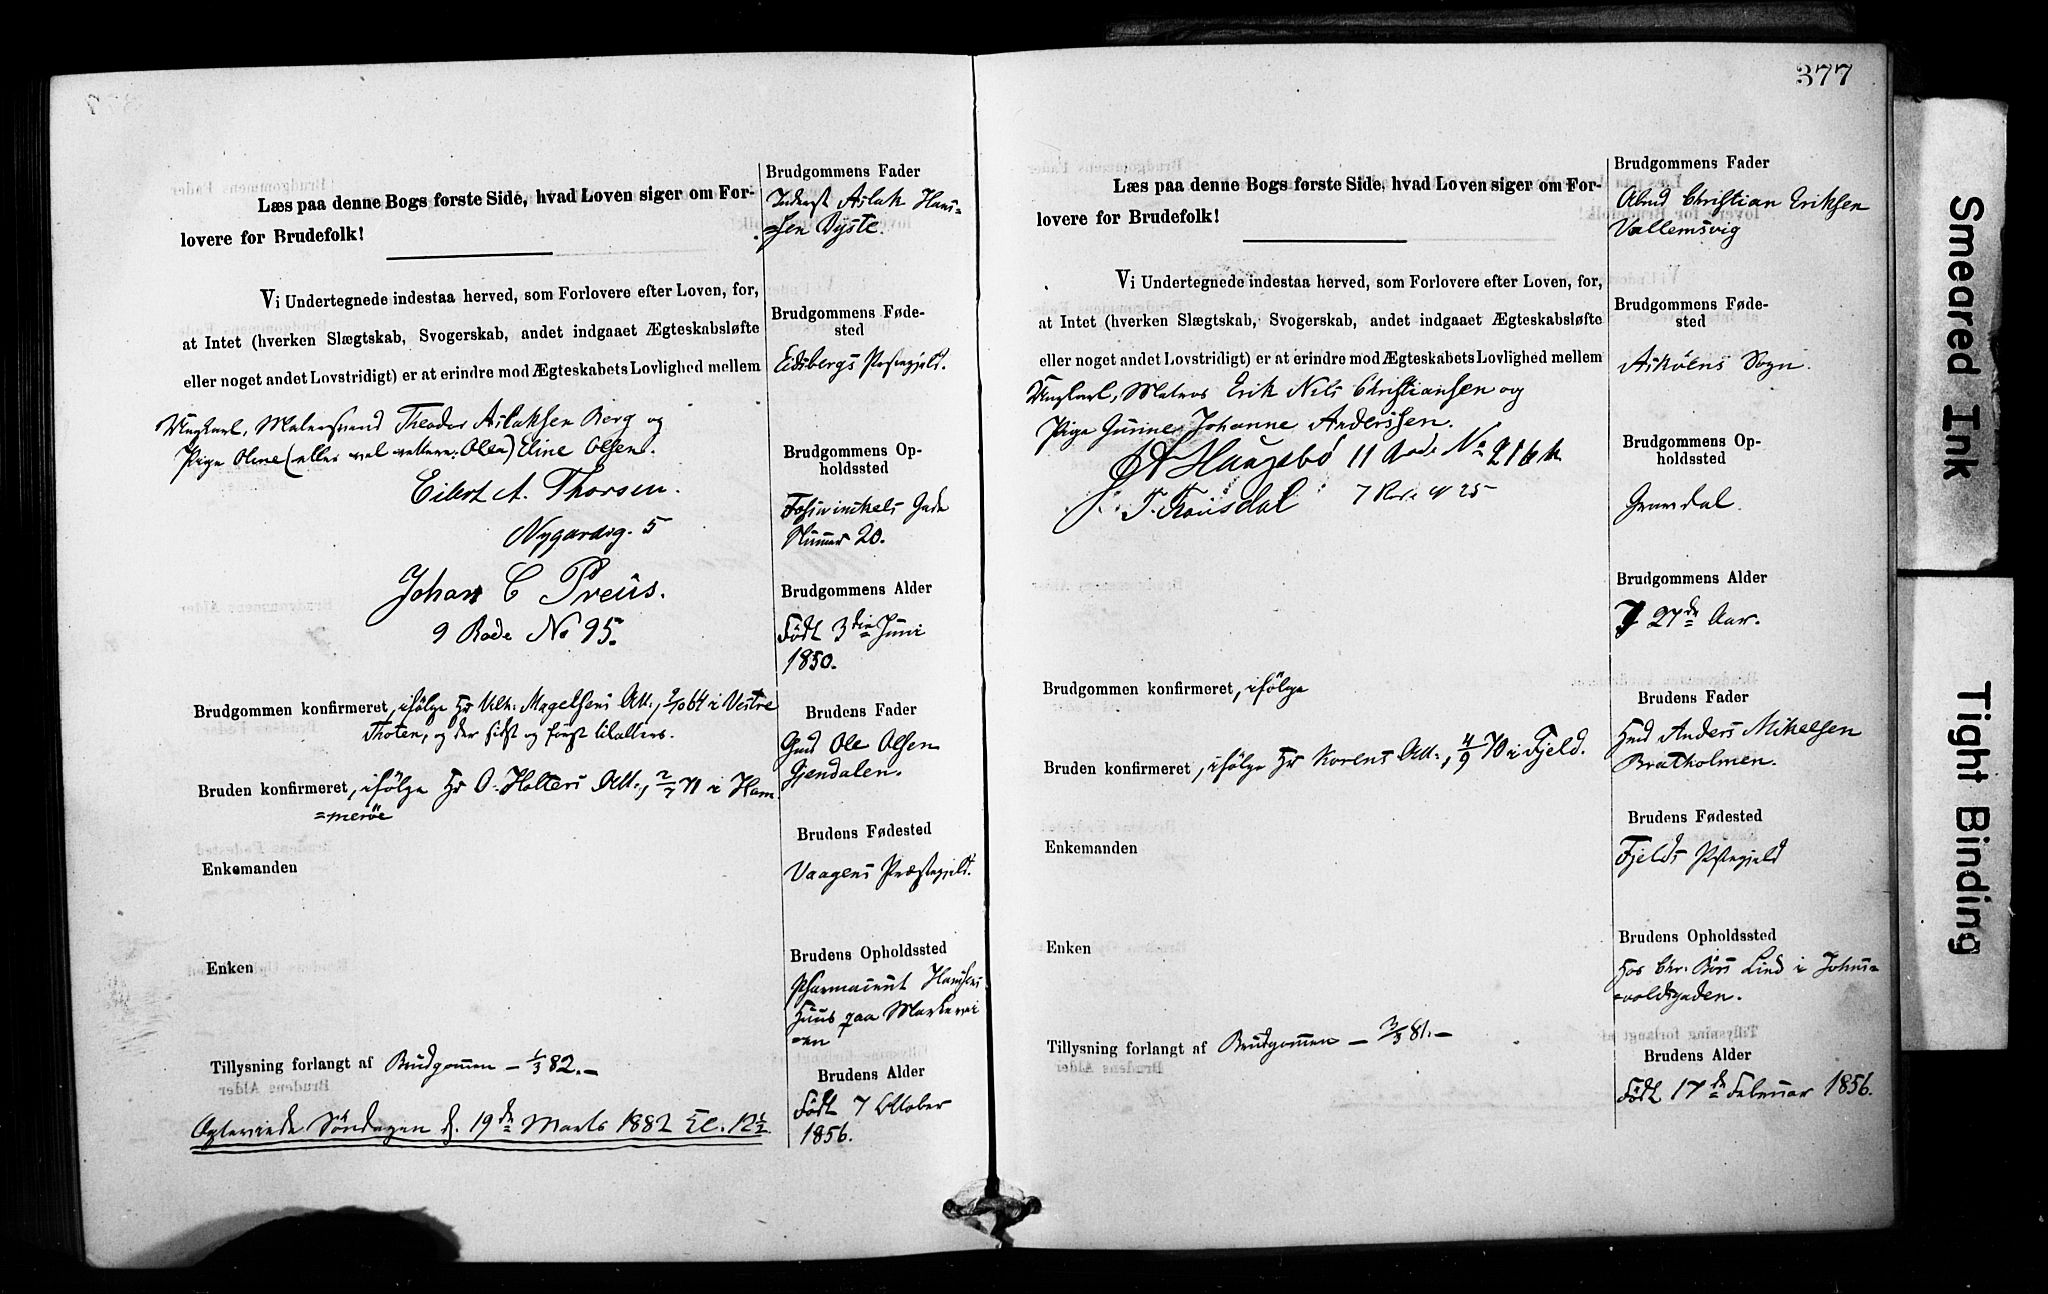 Læs paa denne Bogs første Side, hvad Loven siger om For-
lovere for Brudefolk!
Vi Undertegnede indestaa herved, som Forlovere efter Loven, for,
at Intet (hverken Slægtskab, Svogerskab, andet indgaaet Ægteskabsløfte
eller noget andet Lovstridigt) er at erindre mod Ægteskabets Lovlighed mellem
Ungkarl, Malersvend Theodor Aslaksen Berg og
Pige Oline (eller vel rettere: Olea) Eline Olsen.
Eilert A. Thorsen.
Nygardsg. 5
Johan C Preüs.
9 Rode No 95.
Brudgommen konfirmeret, ifölge Hr Vilh: Magelsens Att:, 2/10 64 i Vestre
Thoten, og der sidst og först tilalters.
Bruden konfirmeret, ifölge Hr O. Holters Att:, 2/7 71 i Ham
=meröe
Enkemanden
Enken
Tillysning forlangt af Brudgommen – 1/3 82. –
Ægteviede Söndagen d. 19de Marts 1882 Kl. 12½
Brudgommens Fader
Inderst Aslak Han=
=sen Dyste.
Brudgommens Føde-
sted
Eidsbergs Præstegjeld.
Brudgommens Op-
holdssted
Foswinckels Gade
Numer 20.
Brudgommens Alder
Födt 3die Juni
1850.
Brudens Fader
Gmd Ole Olsen
Gjendalen.
Brudens Fødested
Vaagens Præstegjeld.
Brudens Opholdssted
Pharmaceut Hansens
Huus paa Markevei
=en
Brudens Alder
Födt 7 Oktober
1856.
377
Læs paa denne Bogs første Side, hvad Loven siger om For-
lovere for Brudefolk!
Vi Undertegnede indestaa herved, som Forlovere efter Loven, for,
at Intet (hverken Slægtskab, Svogerskab, andet indgaaet Ægteskabsløfte
eller noget andet Lovstridigt) er at erindre mod Ægteskabets Lovlighed mellem
Ungkarl, Matros Erik Nils Christiansen og
Pige Gurine Johanne Anderssen.
A Haugsbö 11 Rode No 216 k
7 Rode No 25
Brudgommen konfirmeret, ifölge
Bruden konfirmeret, ifölge Hr Korens Att:, 4/9 70 i Fjeld.
Enkemanden
Enken
Tillysning forlangt af Brudgommen – 3/3 81. –
Brudgommens Fader
Christian Eriksen
Vallemsvig
Brudgommens Føde-
sted
Asköens Sogn.
Brudgommens Op-
holdssted
Gravdal.
Brudgommens Alder
I 27de Aar.
Brudens Fader
Hmd Anders Mikelsen
Bratholmen.
Brudens Fødested
Fjelds Præstegjeld
Brudens Opholdssted
Hos Chr. Börs Lind i Johns=
=voldsgaden.
Brudens Alder
Födt 17de Februar 1856.
Smeared Ink
Tight Binding